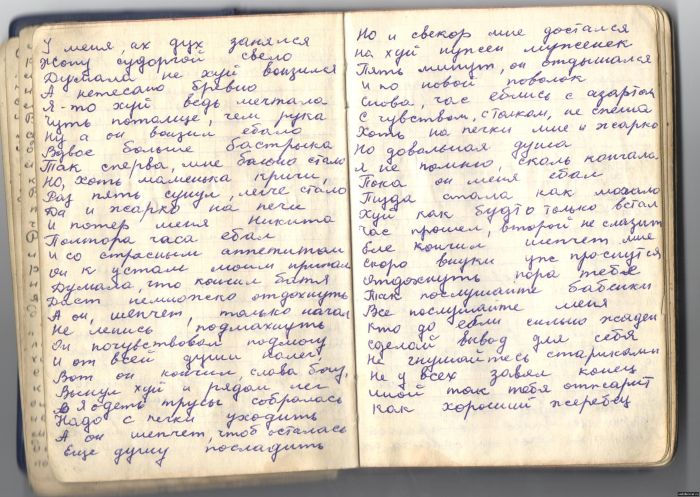 У меня, ах дух занялся
Жопу судоргой свело
Думала не хуй вонзился
А нетесано бревно
Я-то хуй ведь мечтала
Чуть потолще, чем рука
Ну а он вощил ебало
Вдвое больше бастрыка
Так сперва, мне больно стало
Но, хоть маменька кричи,
Раз пять сунул, легче стало
Да и жарко на печи
И потер меня Никита
Полтора часа ебал
И со страсным аппетитом
Он к устам моим припал
Думала, что кончил битя
Даст немножко отдохнуть
А он, шепчет, только начал
Не ленись, подмахнуть
Он почувствовал подмогу
И от всей души налег,
Вот он кончил, слава богу,
Вынул хуй и рядом лег
Я одеть трусы собралась
Надо с печки уходить
А он шепчет, чтоб осталась
Еще душу посладить
Но и свекор мне достался
На хуй нужен муженек
Пять минут, он отдышался
И по новой поволок
Снова, час еблись с азартом
С чувством, столком, не спеша
Хоть на печки мне и жарко
Но довольная душа
Я не помню, сколь кончала
Пока он меня ебал
Пизда стала как мочало
Хуй как будто только встал
Час прошел, второй не слазит
Еле кончил шепчет мне
Скоро внуки уже проснутся
Отдохнуть пора тебе
Так послушайте бабёнки
Все послушайте меня
Кто до ебли сильно жаден
Сделай вывод для себя
Не гнушайтесь стариками
Не у всех завял конец
Иной так тебя отжарит
Как хороший жеребец